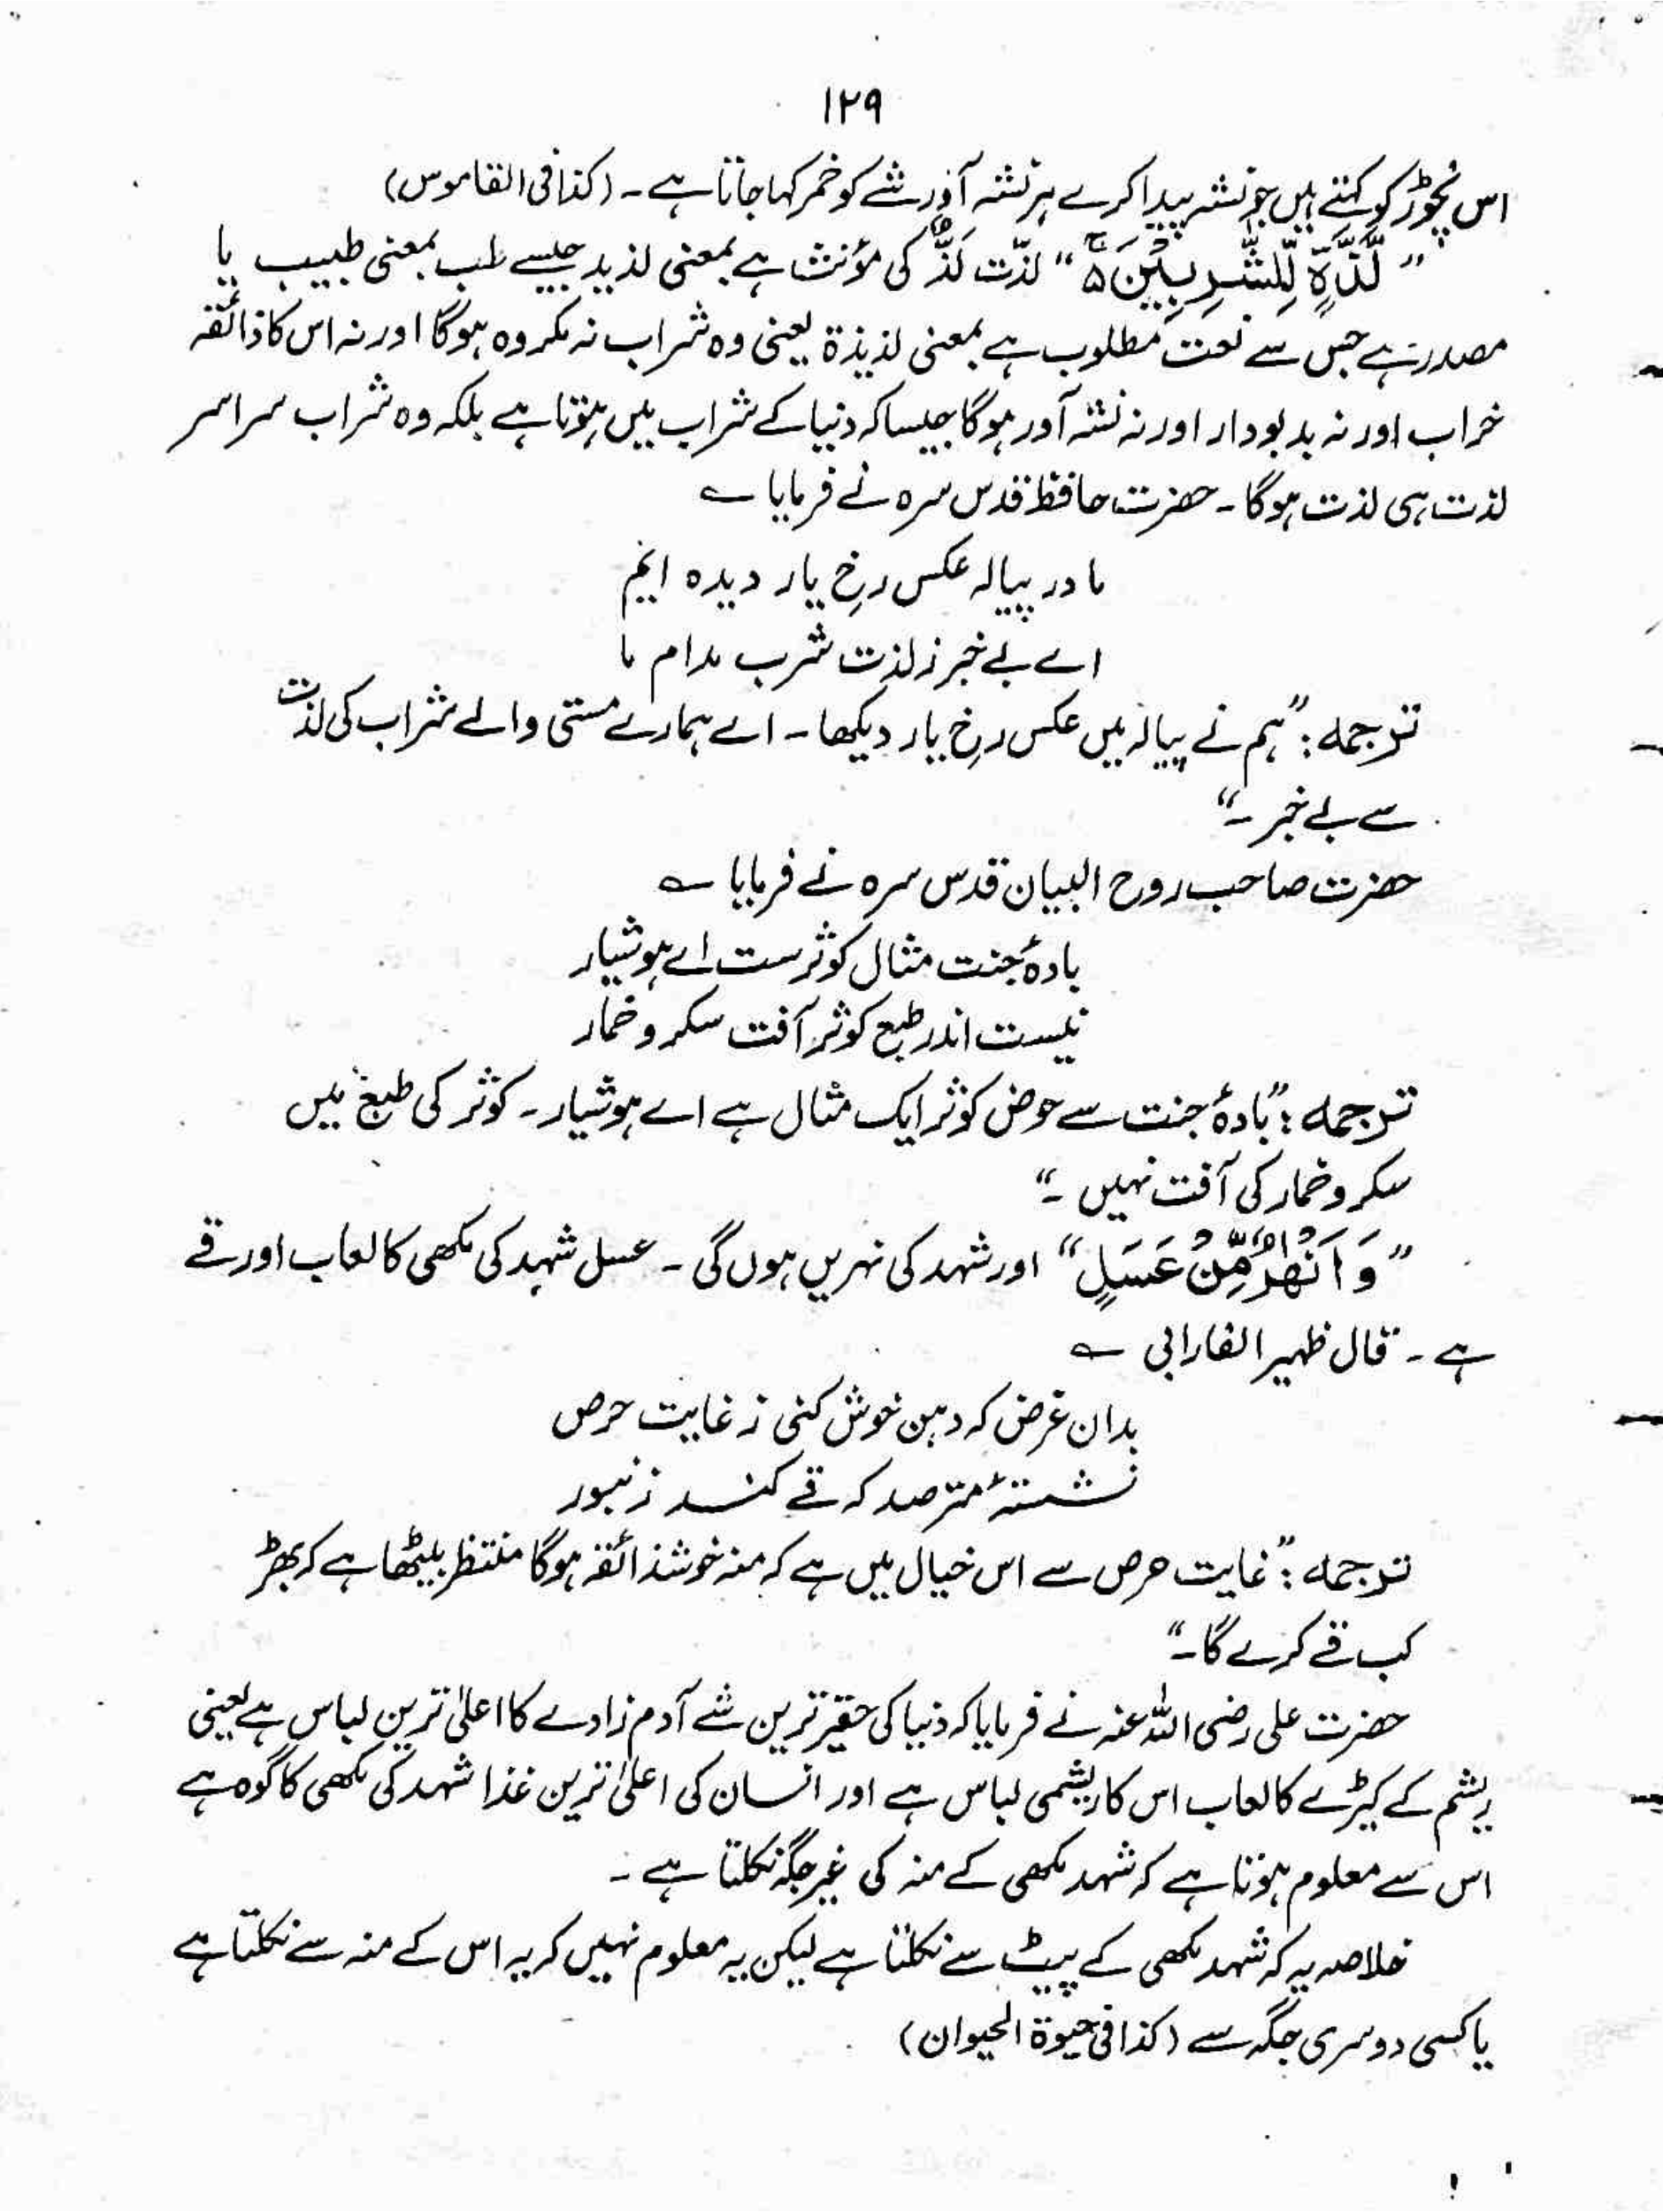 ۱۲۹
اس نچوڑ کو کہتے ہیں جو نشہ پیدا کرے ہر نشہ آور شے کو خمر کہا جاتا ہے ۔ (کذا فی القاموس)
” لَّذَّةٍ لِّلشّٰرِبِيْنَ ۵ “ لذّت لَذٌّ کی مؤنث ہے بمعنی لذید جیسے طب بمعنی طبیب یا
مصدر ہے جس سے نعت مطلوب ہے بمعنی لذیذة یعنی وہ شراب نہ مکروہ ہوگا اور نہ اس کا ذائقہ
خراب اور نہ بدبودار اور نہ نشہ آور ہوگا جیسا کہ دنیا کے شراب میں ہوتا ہے بلکہ وہ شراب سراسر
لذت ہی لذت ہوگا ۔ حضرت حافظ قدس سرہ نے فرمایا ؎
ما در پیالہ عکس رخِ یار دیدہ ایم
اے بے خبر ز لذت شرب مدام ما
ترجمہ : ” ہم نے پیالہ میں عکس رخِ یار دیکھا ۔ اے ہمارے مستی والے شراب کی لذت
سے بے خبر ۔“
حضرت صاحب روح البیان قدس سرہ نے فرمایا ؎
بادۂ جنت مثال کوثرست اے ہوشیار
نیست اندر طبع کوثر آفت سکر و خمار
ترجمہ : ” بادۂ جنت سے حوض کوثر ایک مثال ہے اے ہوشیار ۔ کوثر کی طبع میں
سکر و خمار کی آفت نہیں ۔“
” وَ اَنْهٰرٌ مِّنْ عَسَلٍ “ اور شہد کی نہریں ہوں گی ۔ عسل شہد کی مکھی کا لعاب اور قے
ہے ۔ قال ظہیر الفارابی ؎
بدان غرض کہ دہن خوش کنی ز غایت حرص
نشستۂ مترصد کہ قے کند زنبور
ترجمہ : ” غایت حرص سے اس خیال میں ہے کہ منہ خوشذائقہ ہوگا منتظر بیٹھا ہے کہ بھڑ
کب قے کرے گا ۔“
حضرت علی رضی اللہ عنہ نے فرمایا کہ دنیا کی حقیر ترین شے آدم زادے کا اعلیٰ ترین لباس ہے یعنی
ریشم کے کیڑے کا لعاب اس کا ریشمی لباس ہے اور انسان کی اعلیٰ ترین غذا شہد کی مکھی کا گوہ ہے
اس سے معلوم ہوتا ہے کہ شہد مکھی کے منہ کی غیر جگہ نکلتا ہے ۔
خلاصہ یہ کہ شہد مکھی کے پیٹ سے نکلتا ہے لیکن یہ معلوم نہیں کہ یہ اس کے منہ سے نکلتا ہے
یا کسی دوسری جگہ سے (کذا فی حیوة الحیوان)